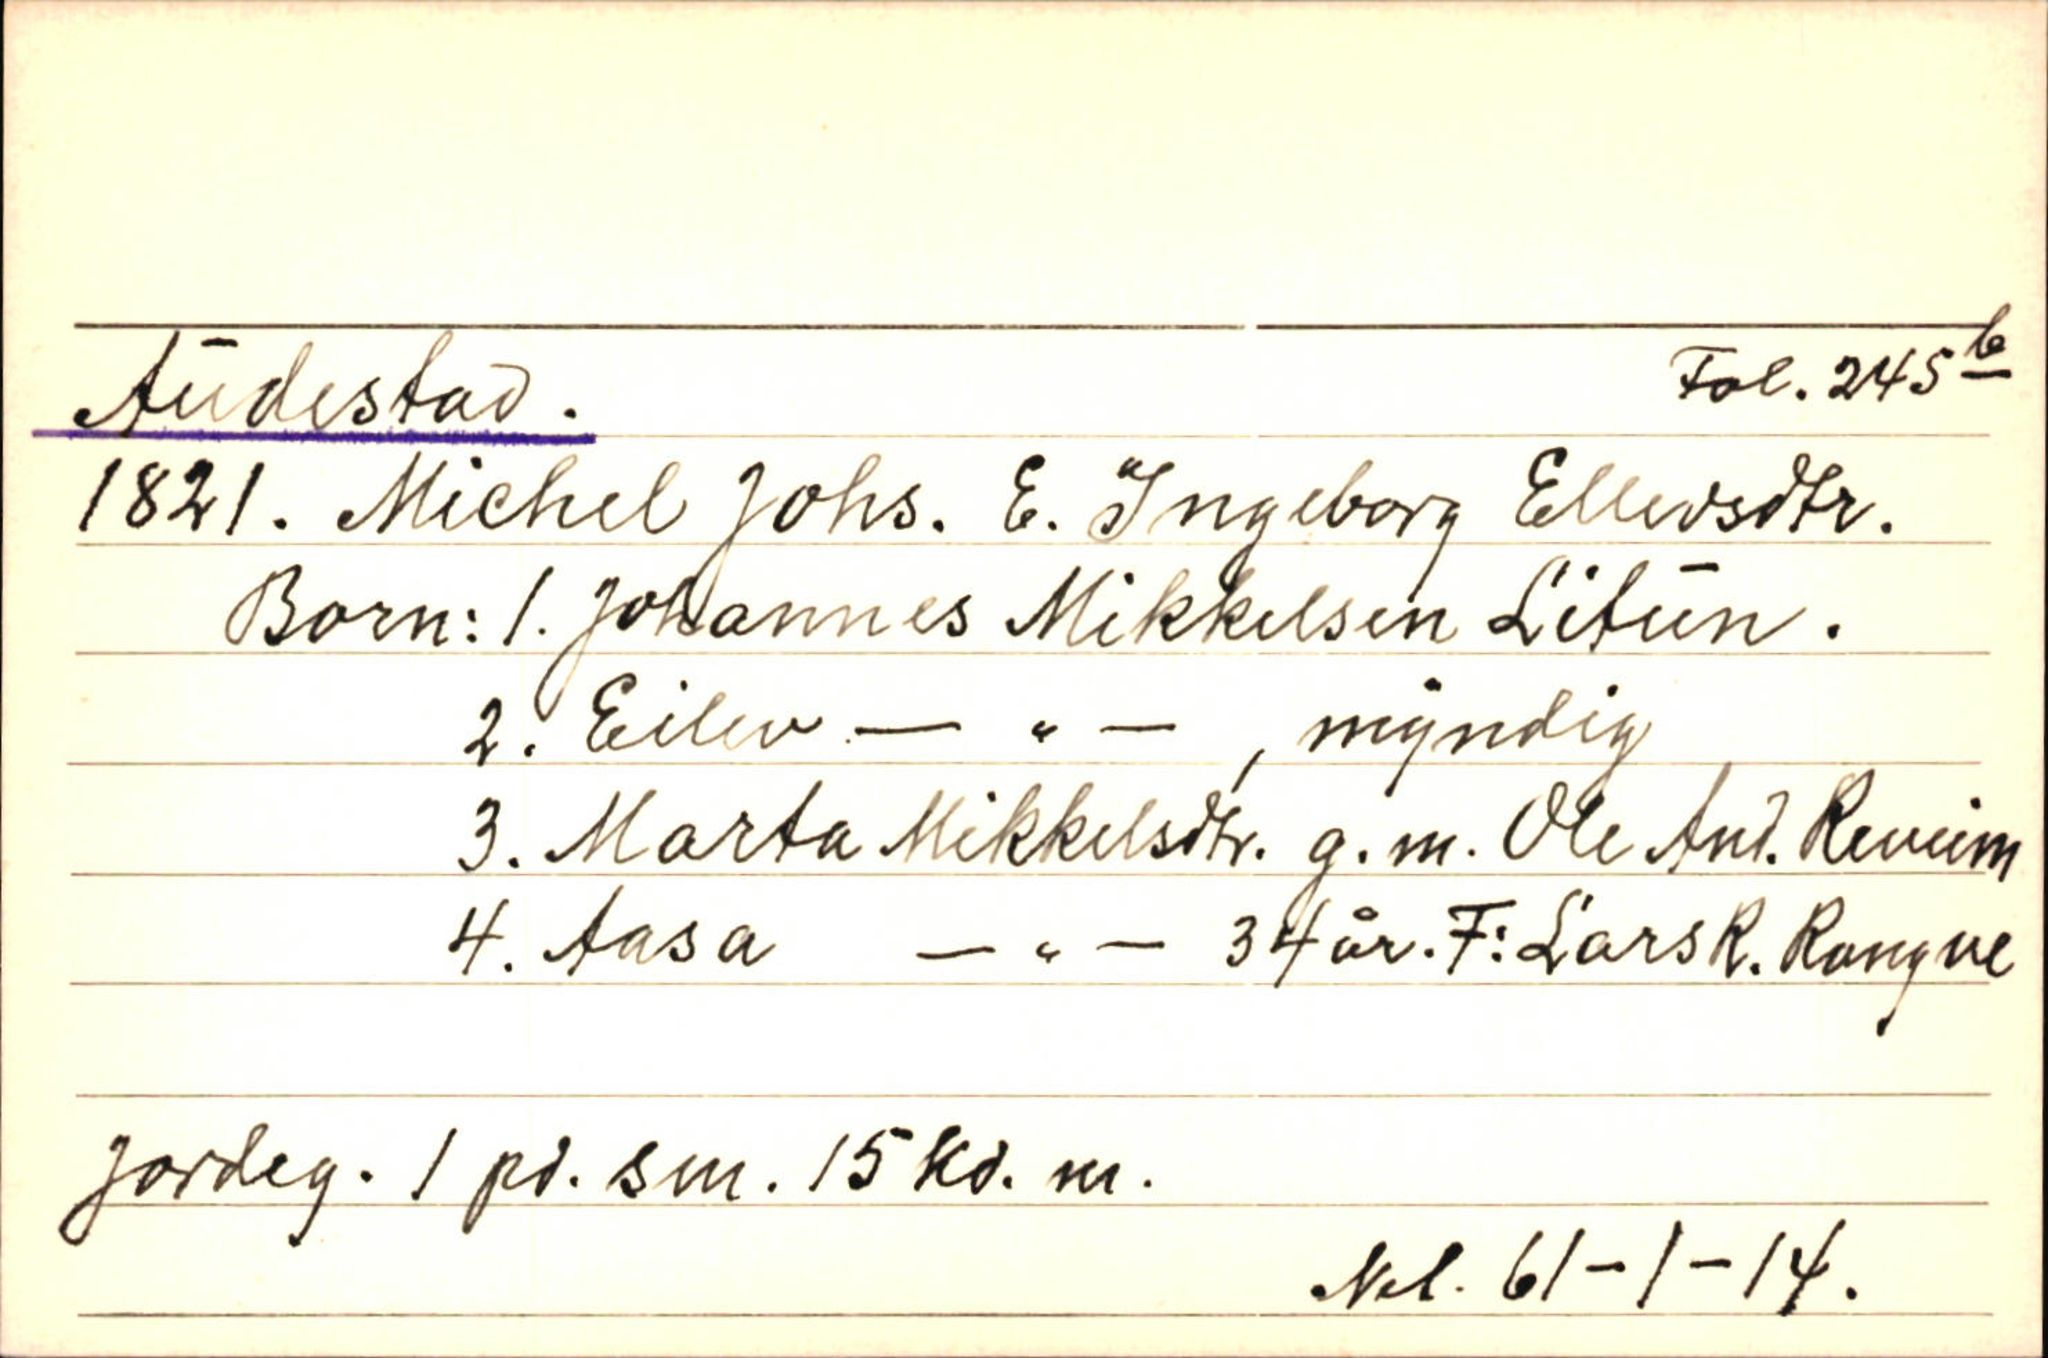 Aūdestad. Fol. 245 b
1821. Michel Johs. E. Ingeborg Ellevsdtr.
Born: 1. Johannes Mikkelsen Litūn.
2. Eilev — " — , myndig
3. Marta Mikkelsdtr. g. m. Ole And. Reveim
4. Aasa — " — 34 år. F: Lars R. Rongve
Jordeg. 1 pd. sm. 15 kd. m.
Nel. 61-1-14.